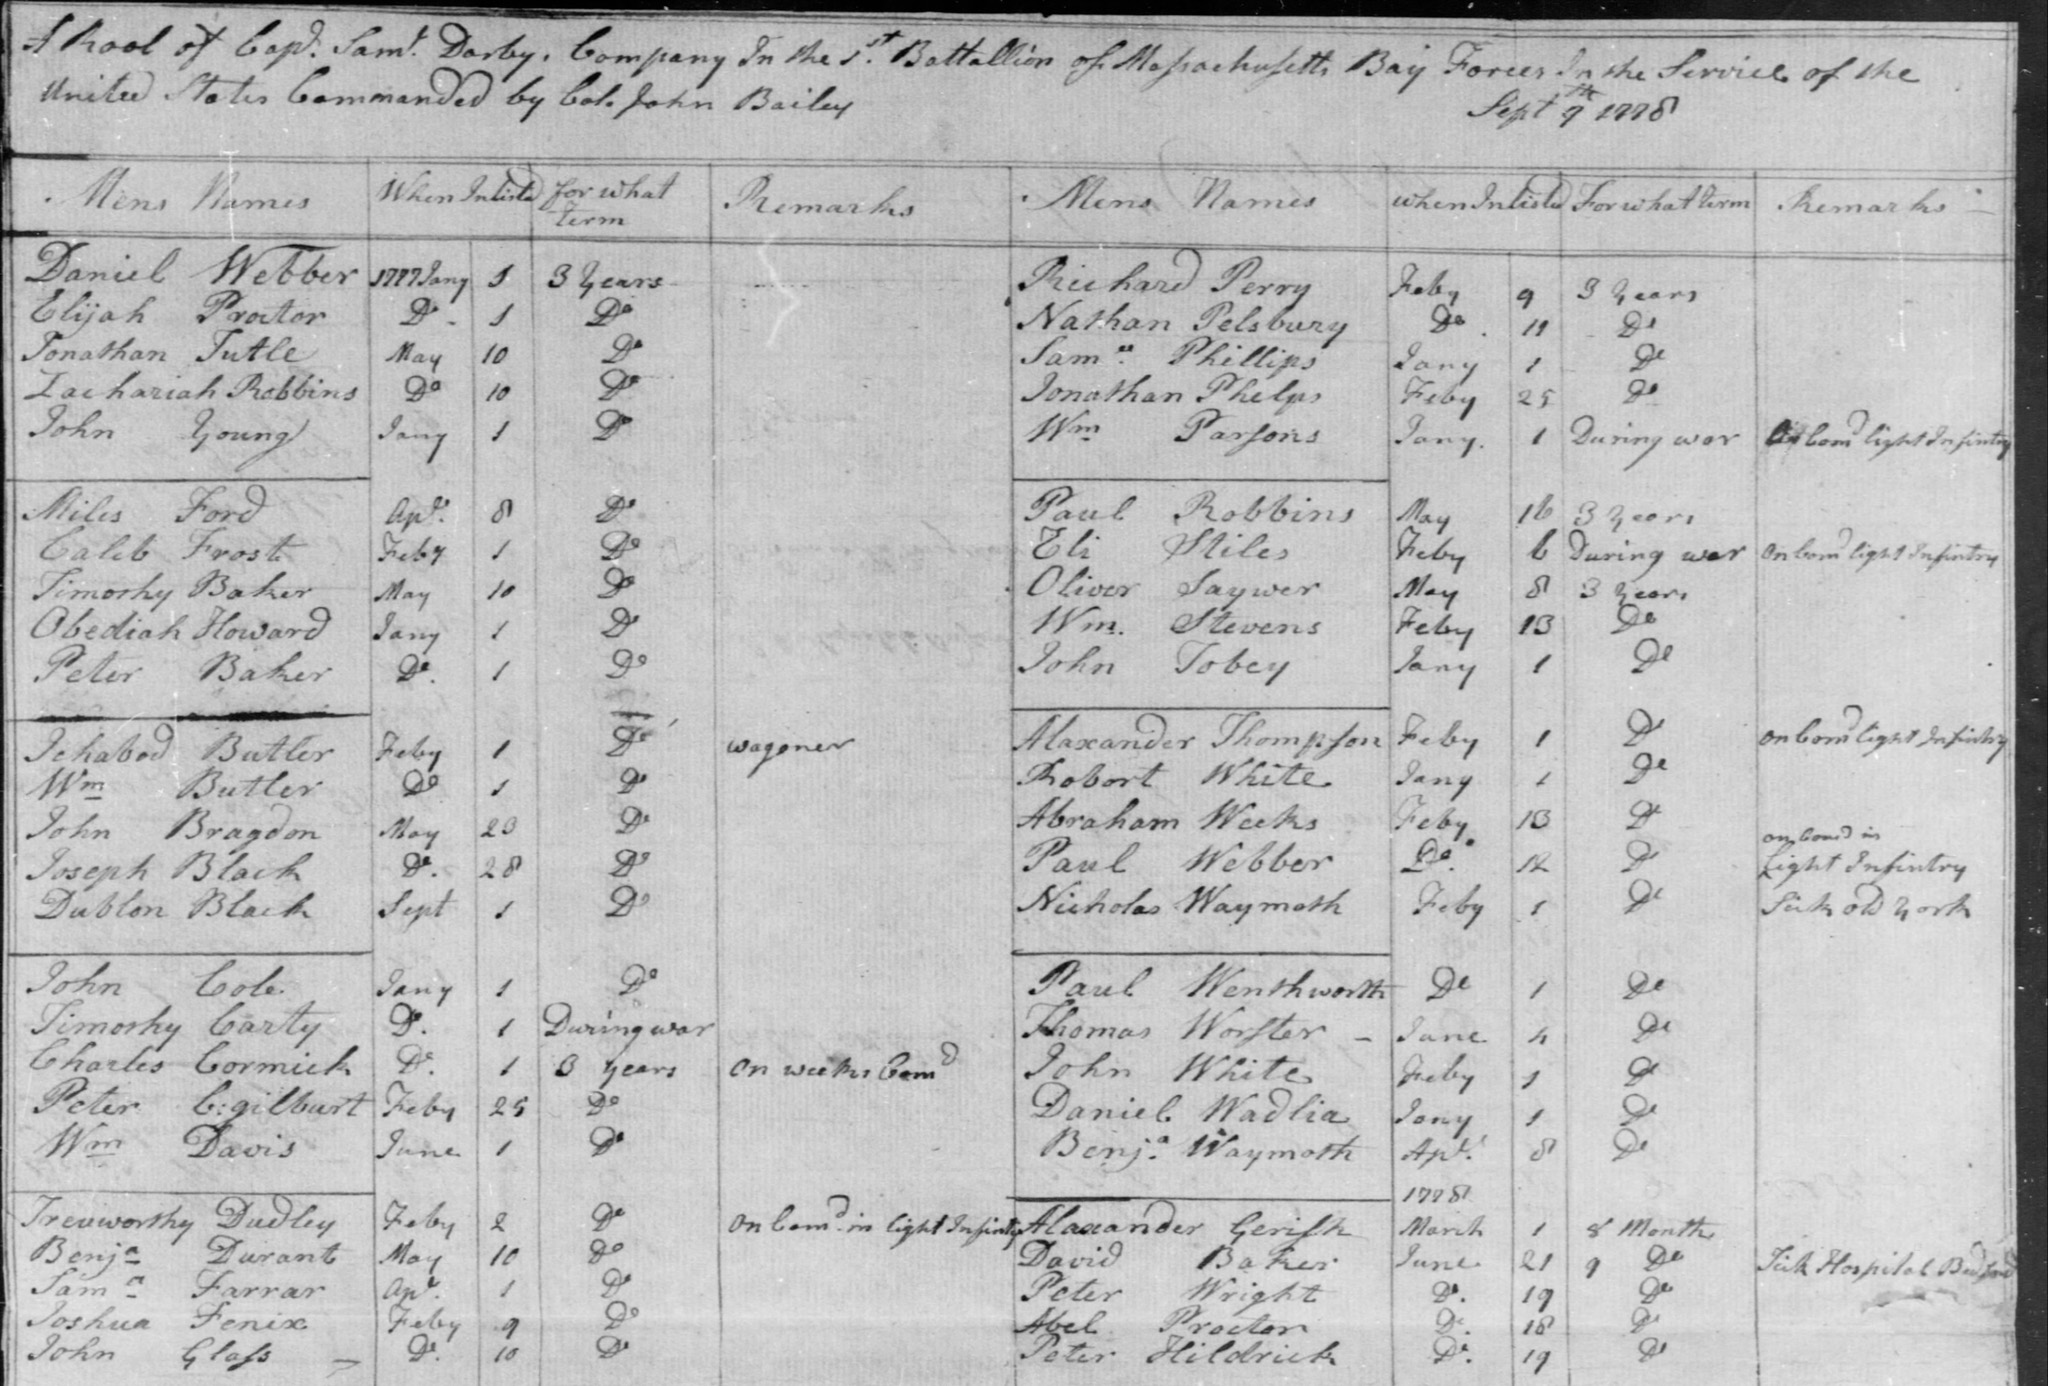 A Rool of Capt. Saml. Darby. Company In the 1st. Battallion of Massachusetts Bay Forces In the Service of the
United States Commanded by Col. John Bailey Sept 9th 1778
Mens Names When Inlisted for what term Remarks Mens Names when Inlisted For what term Remarks
Daniel Webber 1777 Jany 1 3 Years Richard Perry Feby 9 3 Years
Elijah Proctor Do 1 Do Nathan Pelsbury Do. 11 Do
Jonathan Tutle May 10 Do Saml. Phillips Jany 1 Do
Zachariah Robbins Do 10 Do Jonathan Phelps Feby 25 Do
John Young Jany 1 Do Wm Parsons Jany. 1 During war On Comd light Infintry
Miles Ford Apl. 8 Do Paul Robbins May 16 3 Years
Caleb Frost Feby 1 Do Eli Stiles Feby 6 During war On Comd light Infintry
Timothy Baker May 10 Do Oliver Saywer May 8 3 Years
Obediah Howard Jany 1 Do Wm. Stevens Feby 13 Do
Peter Baker Do. 1 Do John Tobey Jany 1 Do
Ichabod Butler Feby 1 Do wagoner Alaxander Thompson Feby 1 Do on Comd light Infintry
Wm Butler Do 1 Do Robort White Jany 1 Do
John Bragdon May 23 Do Abraham Weeks Feby 13 Do
Joseph Black Do. 28 Do Paul Webber Do. 12 Do on Comd in Light Infintry
Dublon Black Sept 1 Do Nicholas Waymoth Feby 1 Do Sick old York
John Cole Jany 1 Do Paul Wenthworth Do 1 Do
Timothy Carty Do. 1 During war Thomas Worster Jane 4 Do
Charles Cormick Do. 1 3 years On weeks Comd John White Feby 1 Do
Peter C:gilburt Feby 25 Do Daniel Wadlia Jany 1 Do
Wm Davis June 1 Do Benja. Waymoth Apl. 8 Do
1778
Treuworthy Dudley Feby 2 Do On Comd. in light Infintry Alaxander Gerish March 1 8 Months
Benja Durant May 10 Do David Baker June 21 9 Do Sick Hospital Bedford
Saml Farrar Apl. 1 Do Peter Wright Do. 19 Do
Joshua Fenix Feby 9 Do Abel Proctor Do. 18 Do
John Glass Do. 10 Do Peter Hildrick Do. 19 Do